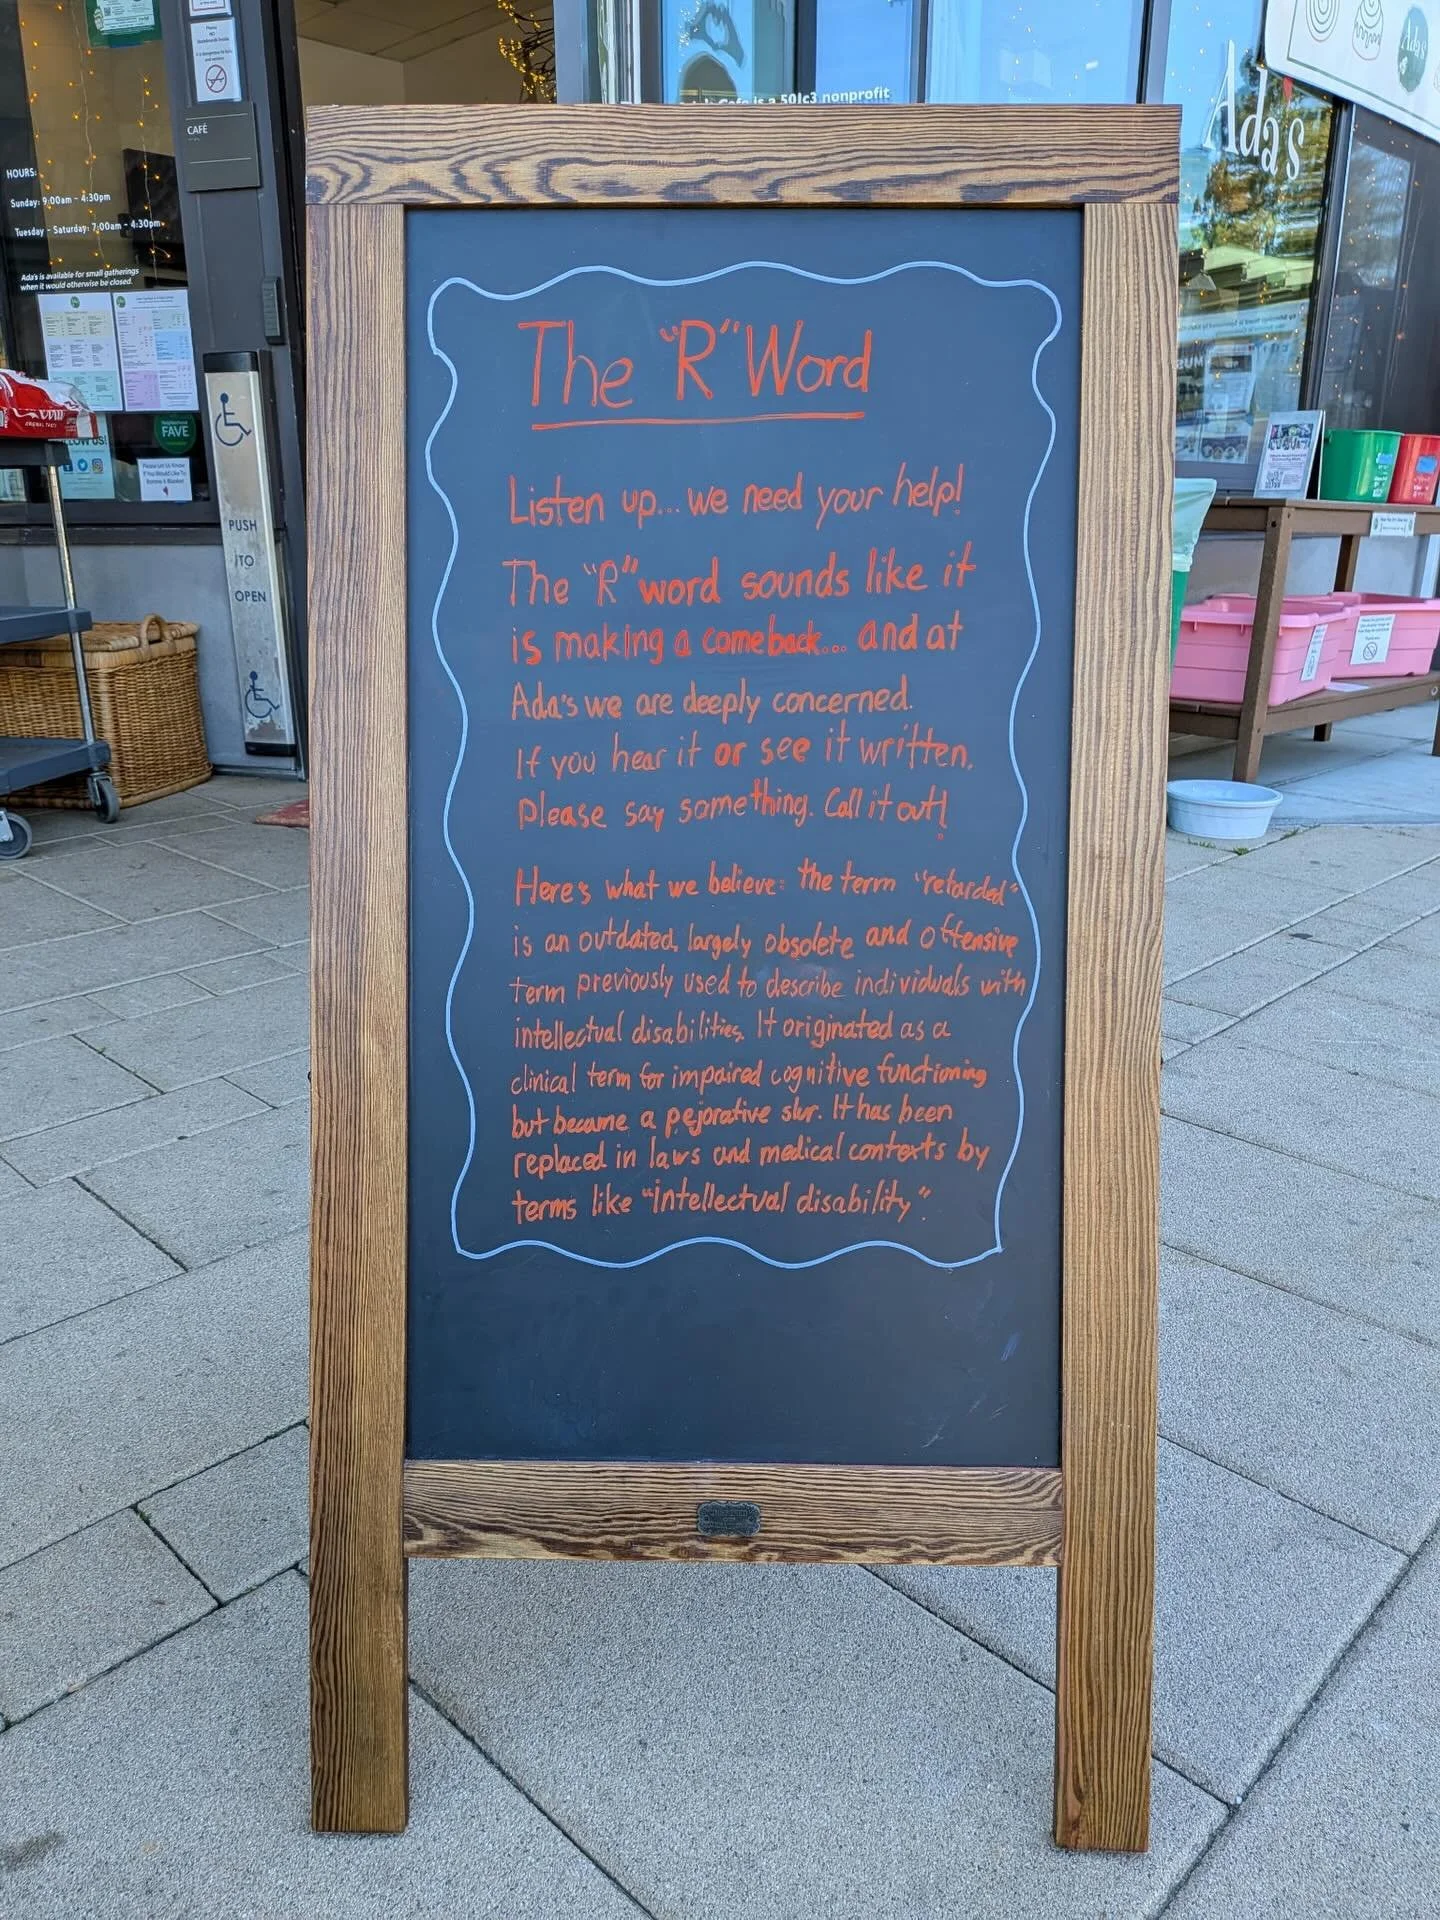 Please
NO
Skateboards Inside
CAFÉ
HOURS:
Sunday: 9:00am - 4:30pm
Tuesday - Saturday: 7:00am - 4:30pm
Ada's is available for small gatherings
when it would otherwise be closed.
Café is a 501c3 nonprofit
Ada's
Ada's
FAVE
Please Let Us Know
If You Would Like To
Borrow A Blanket
PUSH
TO
OPEN
The "R" Word
Listen up... we need your help!
The "R" word sounds like it
is making a comeback... and at
Ada's we are deeply concerned.
If you hear it or see it written,
please say something. Call it out!
Here's what we believe: the term "retarded"
is an outdated, largely obsolete and offensive
term previously used to describe individuals with
intellectual disabilities. It originated as a
clinical term for impaired cognitive functioning
but became a pejorative slur. It has been
replaced in laws and medical contexts by
terms like "intellectual disability".